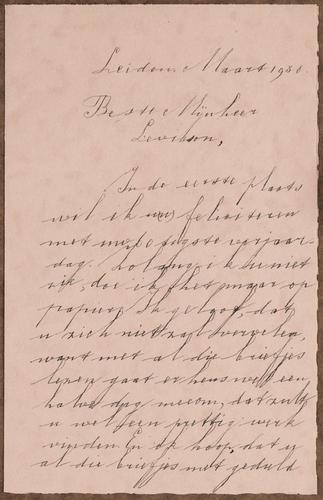 Leiden, Maart 1930.
Beste Mijnheer
Levison,
In de eerste plaats
wil ik u felici­teren
met verjaar-
dag. Zolang ik u niet
zie, doe ik het maar op
papier. Ik geloof, dat
u zich niet zal vervelen,
want met al die briefjes
lezen gaat er heus wel een
halve dag mee om, dat zult
u wel een prettig werk
vinden. En ik hoop, dat u
al die briefjes met geduld